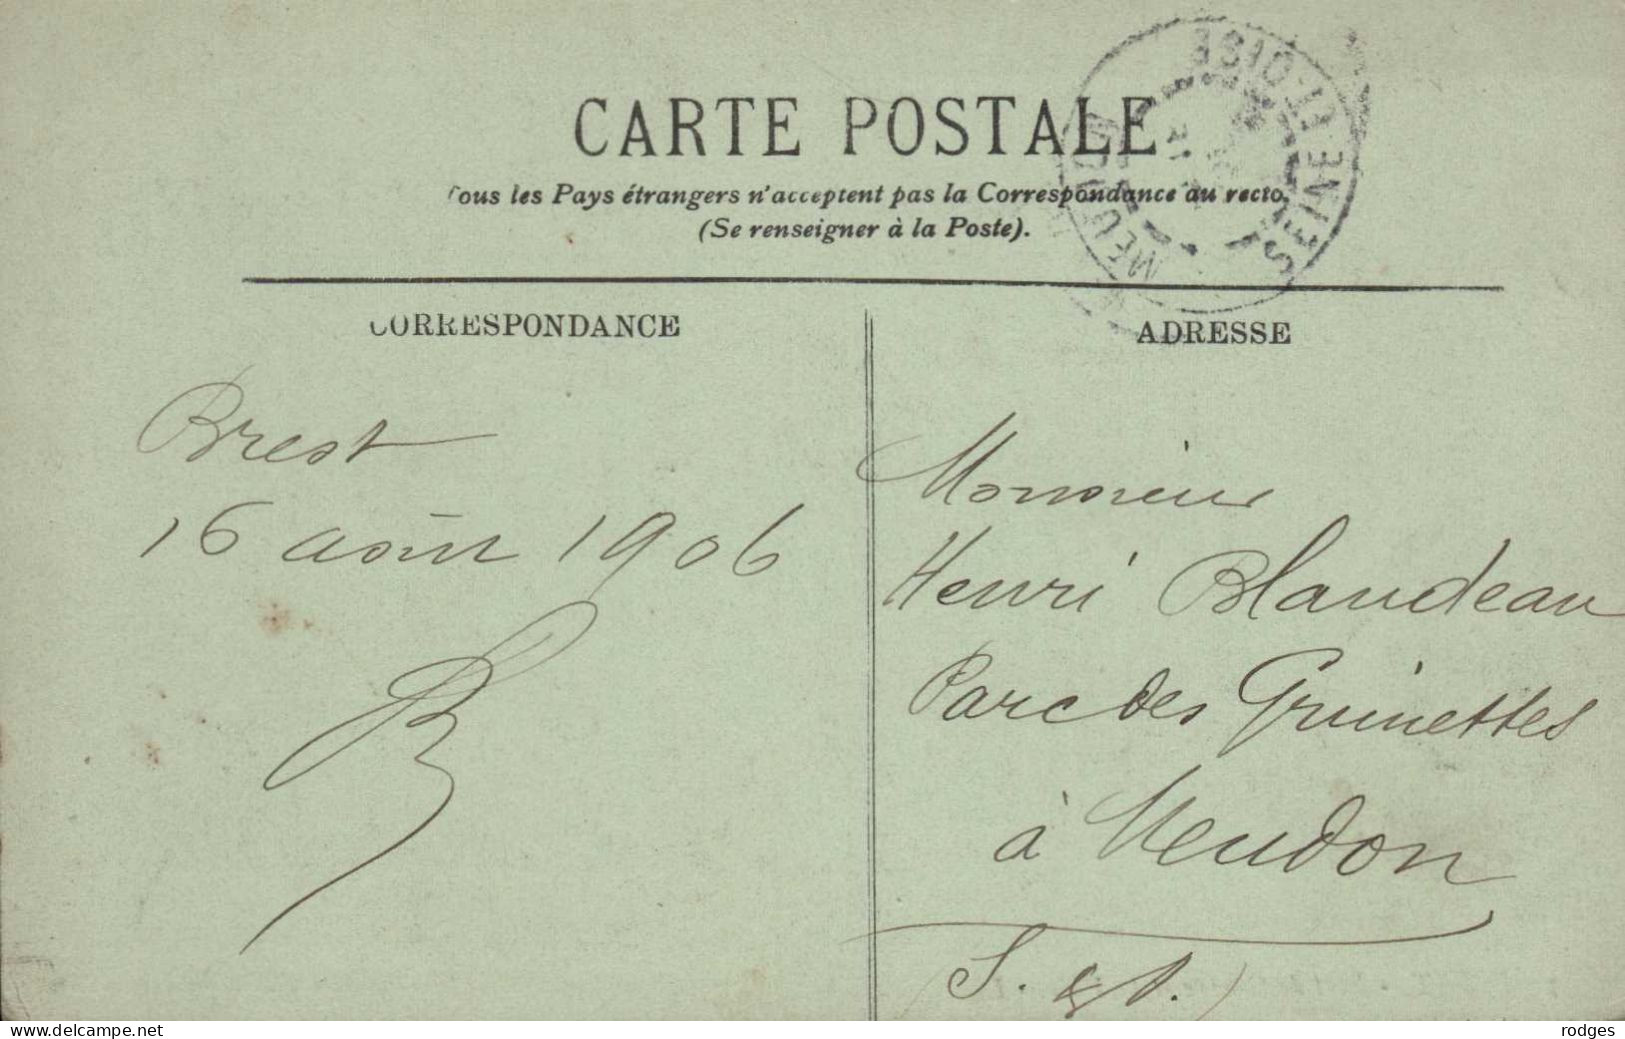 CARTE POSTALE
Tous les Pays étrangers n'acceptent pas la Correspondance au recto.
(Se renseigner à la Poste).
CORRESPONDANCE
ADRESSE
Brest
16 août 1906
Monsieur
Henri Blandeau
Parc des Gruinettes
à Meudon
(S. & O.)
MEUDON SEINE-ET-OISE
www.delcampe.net
rodges